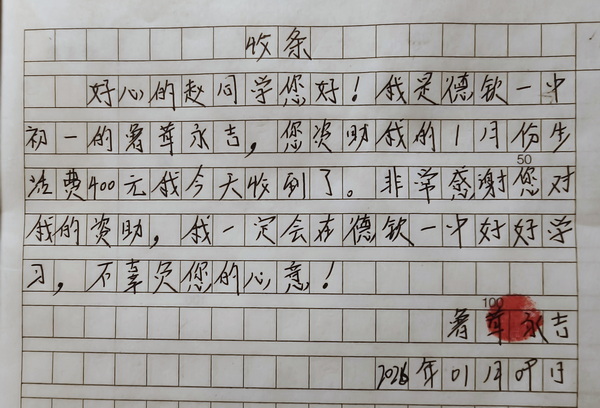 收条
好心的赵同学您好！我是德钦一中
初一的暑茸永吉，您资助我的1月份生
50
活费400元我今天收到了。非常感谢您对
我的资助，我一定会在德钦一中好好学
习，不辜负您的心意！
100
暑茸永吉
2026年01月09日